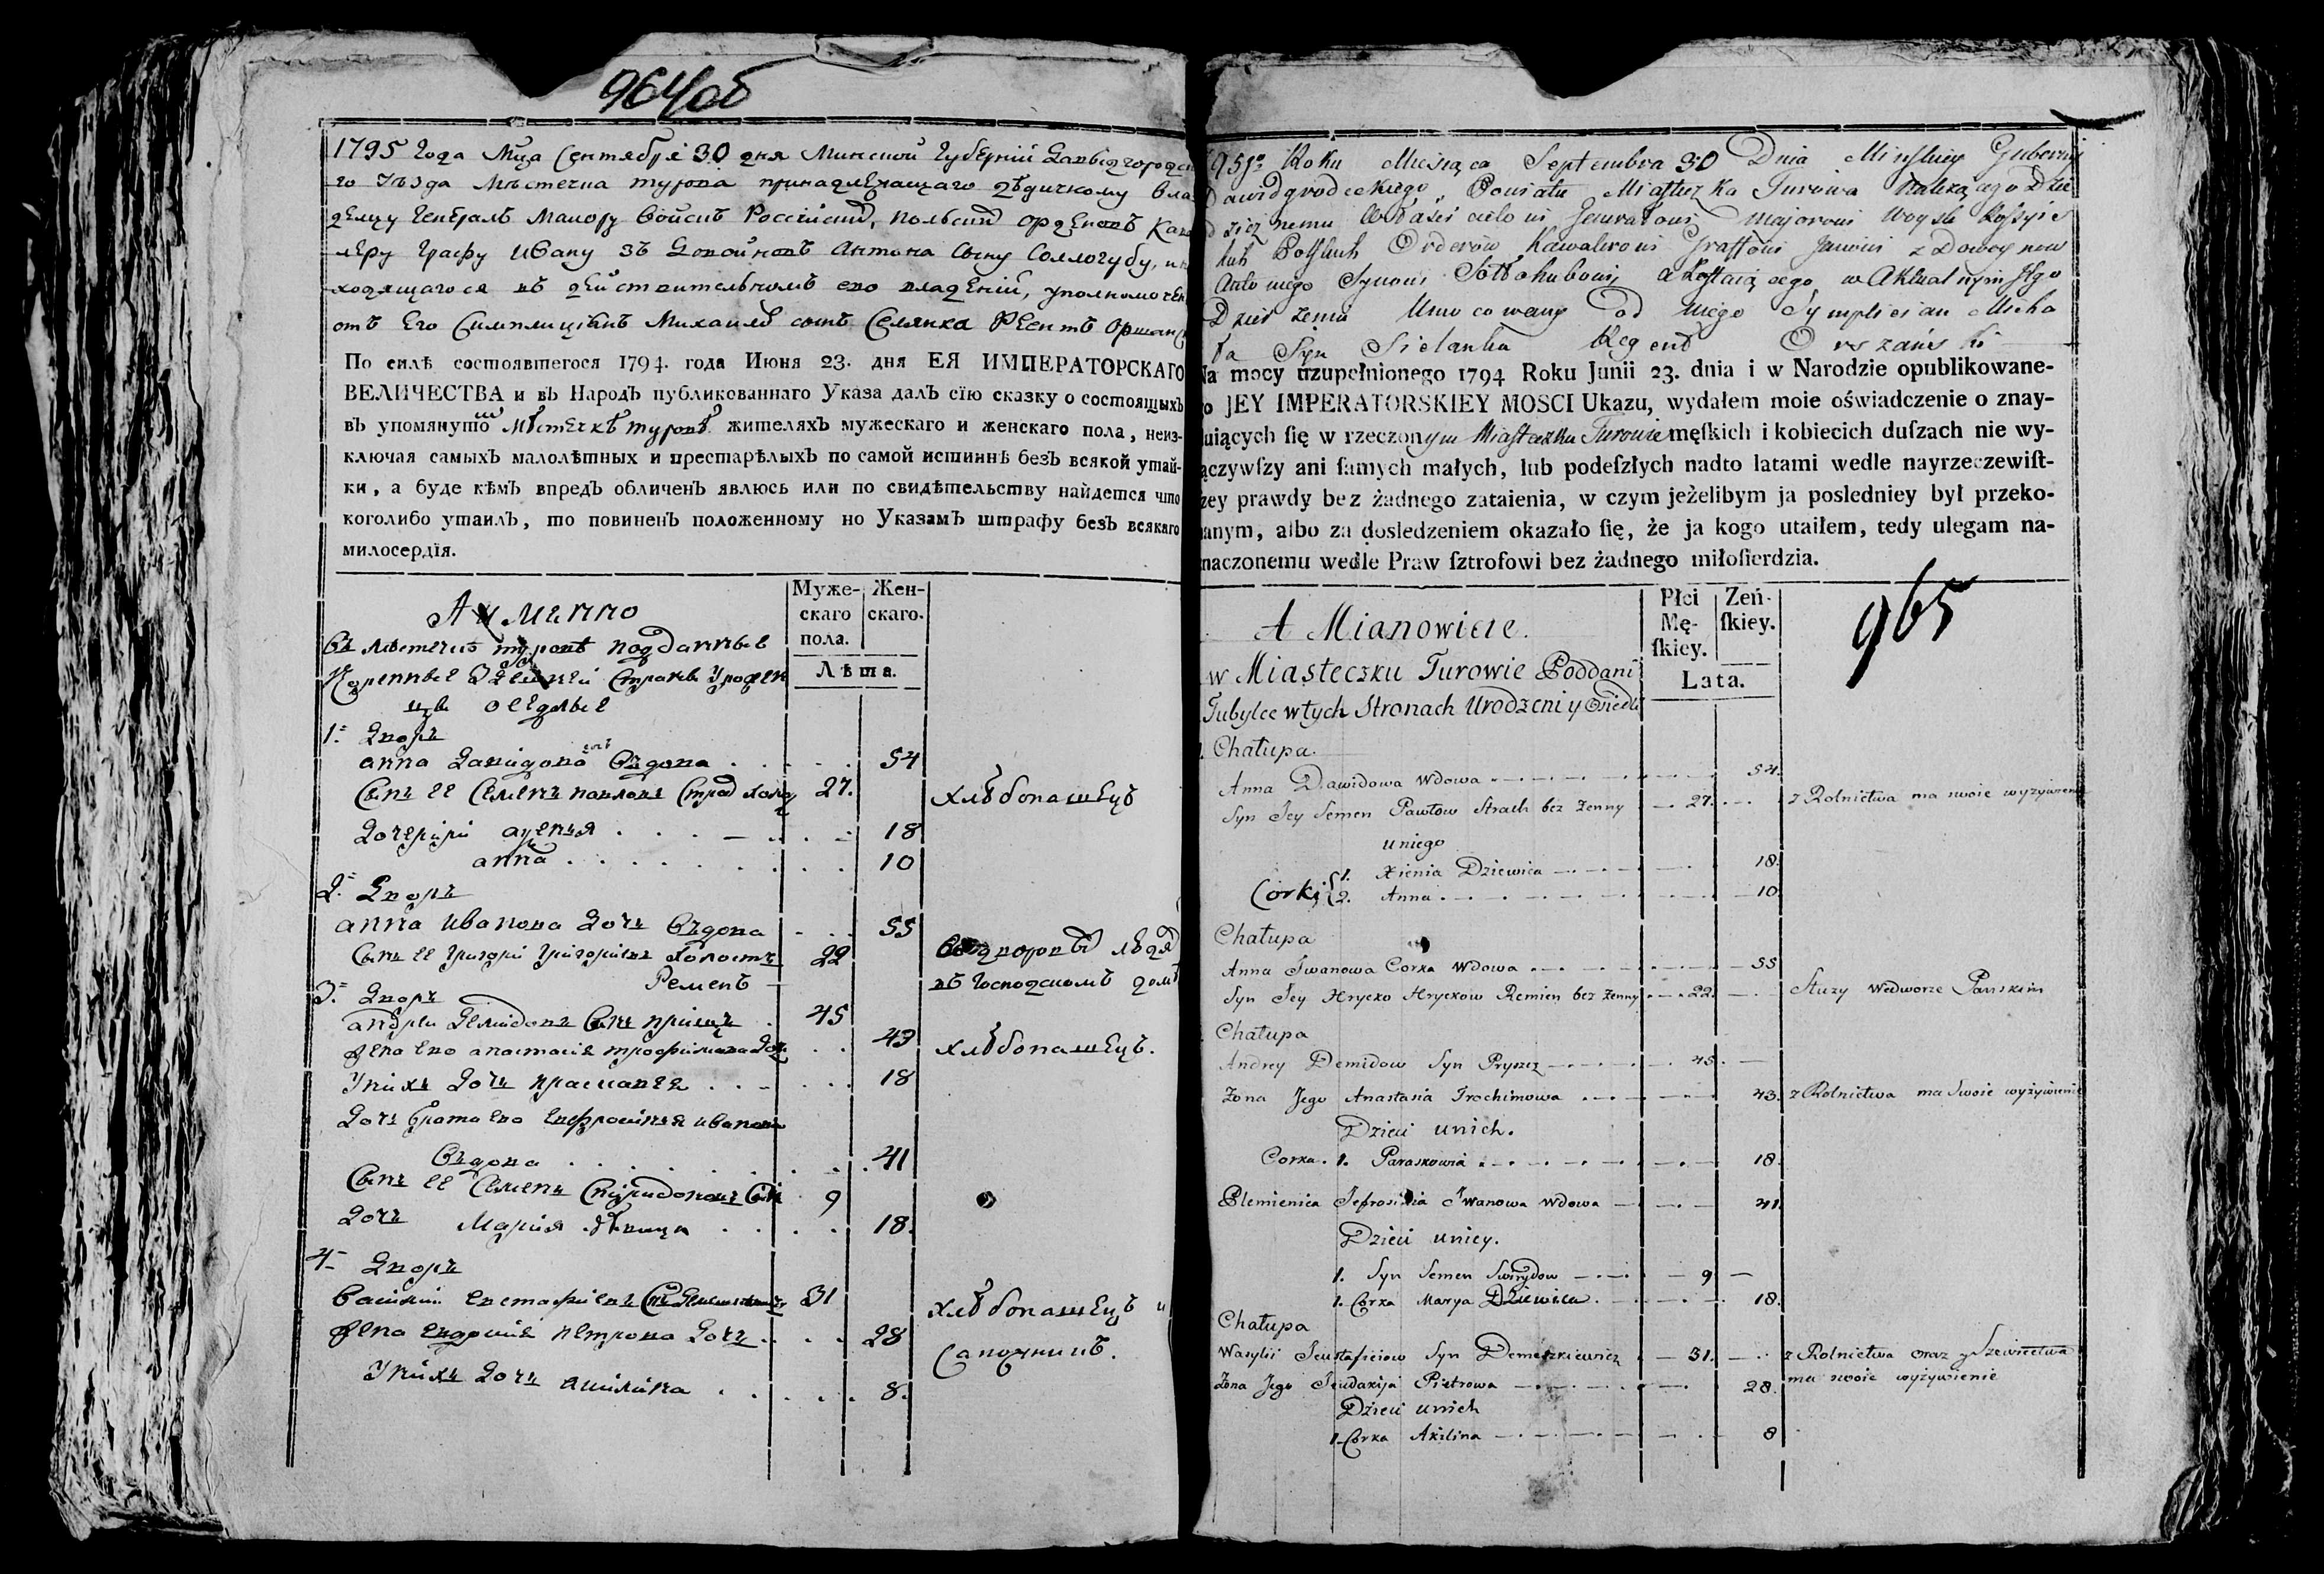 964об
1795 Года Мца Сентября 30 дня Минской Губерніи Давыдгородска
го уѣзда Мѣстечка Турова принадлежащаго дѣдичному вла
дельцу Генералъ Маиору Войскъ Россійскихъ, Польскихъ Орденовъ Кава
леру Графу Ивану зъ Довойновъ Антона Сыну Соллогубу, и на
ходящагося въ дѣйствительномъ его владеніи, уполномочен
отъ Его Симплиціянъ Михаила сынъ Селянка Реентъ Оршанс
По силѣ состоявшегося 1794. года Июня 23. дня ЕЯ ИМПЕРАТОРСКАГО
ВЕЛИЧЕСТВА и въ Народъ публикованнаго Указа далъ сїю сказку о состоящыхъ
въ упомянуто Мѣстечкѣ Туровѣ жителяхъ мужескаго и женскаго пола, неиз-
ключая самыхъ малолѣтныхъ и престарѣлыхъ по самой истиннѣ безъ всякой утай-
ки, а буде кѣмъ впредъ обличенъ явлюсь или по свидѣтельству найдется что
коголибо утаилъ, то повиненъ положенному но Указамъ штрафу безъ всякаго
милосердїя.
А именно
Муже-
скаго
пола.
Жен-
скаго.
Лѣта.
Въ Мѣстечкѣ Туровѣ подданные
Коренные здешней Страны Урожен
цы оседлые
1. Дворъ
Анна Давидова Вдова 54
Сынъ ее Семенъ Павловъ Страх холо 27. хлѣбопашецъ
Дочери 18
Анна 10
2. Дворъ
Анна Иванова Дочь Вдова 55
Сынъ ее Григорій Григорьевъ Холостъ 22
Ременъ
въ Господскомъ домѣ
3. Дворъ
Андрей Демидовъ Сынъ Прищъ 45
Жена его Анастасія Трофимова Дочь 43 хлѣбопашецъ.
У нихъ Дочь Прасковея 18
Дочь брата его Евфросинья Иванова
Вдова 41
Сынъ ее Семенъ Спиридоновъ Сынъ 9
Дочь Марія дѣвица 18.
4 Дворъ
Василій Евстафіевъ Сынъ 31 хлѣбопашецъ и
Жена Евдокія Петрова Дочь 28 сапожникъ.
У нихъ Дочь Акилина 8.
Roku Miesiąca Septembra 30 Dnia Minskiey Gubernij
Dawidgrodeckiego Powiatu Miasteczka Turowa Należącego Dzie
dzicznemu Właścicielowi Generałowi Majorowi Woysk Rossyis
kich Polskich Orderów Kawalerowi Graffowi Janowi z Dowoynow
Antoniego Synowi Sołłohubowi, a zostaiącego w Aktualnym Jego
Dzierżeniu Umocowany Od niego Symplician Micha
ła Syn Sielanka Regent Orszański
Na mocy uzupełnionego 1794 Roku Junii 23. dnia i w Narodzie opublikowane-
go JEY IMPERATORSKIEY MOSCI Ukazu, wydałem moie oświadczenie o znay-
duiących ſię w rzeczonym Miasteczku Turowie męſkich i kobiecich duſzach nie wy-
łączywſzy ani ſamych małych, lub podeſzłych nadto latami wedle nayrzeczewiſt-
szey prawdy bez żadnego zataienia, w czym jeżelibym ja posledniey był przeko-
nanym, albo za dosledzeniem okazało ſię, że ja kogo utaiłem, tedy ulegam na-
znaczonemu wedle Praw ſztrofowi bez żadnego miłoſierdzia.
A Mianowicie.
Płci
Mę-
ſkiey.
Zeń-
ſkiey.
Lata.
965
w Miasteczku Turowie Poddani
Tubylce w tych Stronach Urodzeni y Osiedli
Chałupa.
Anna Dawidowa Wdowa 54.
Syn Jey Semen Pawłow Strach bez Zenny 27. z Rolnictwa ma swoie wyżywienie
u niego
Corki 1. Xienia Dziewica 18.
2. Anna 10
Chałupa
Anna Jwanowa Corka Wdowa 55
Syn Jey Hrycko Hryckow Remien bez Zenny 22. Służy We dworze Pańskim
Chałupa
Andrey Demidow Syn Pryszcz 45.
Zona Jego Anastasia Trochimowa 43. z Rolnictwa ma Swoie wyżywienie
Dzieci u nich.
Corka. 1. Paraskowia 18.
Plemienica Jefrosinia Jwanowa Wdowa 41.
Dzieci u niey.
1. Syn Semen Swirydow 9
1. Corka Marya Dziewica 18.
Chałupa
Wasylii Jeustafieiow Syn Demeszkiewicz 31. z Rolnictwa oraz y Szewictwa
Zona Jego Jeudakija Pietrowa 28. ma swoie wyżywienie
Dzieci u nich
1. Corka Akilina 8